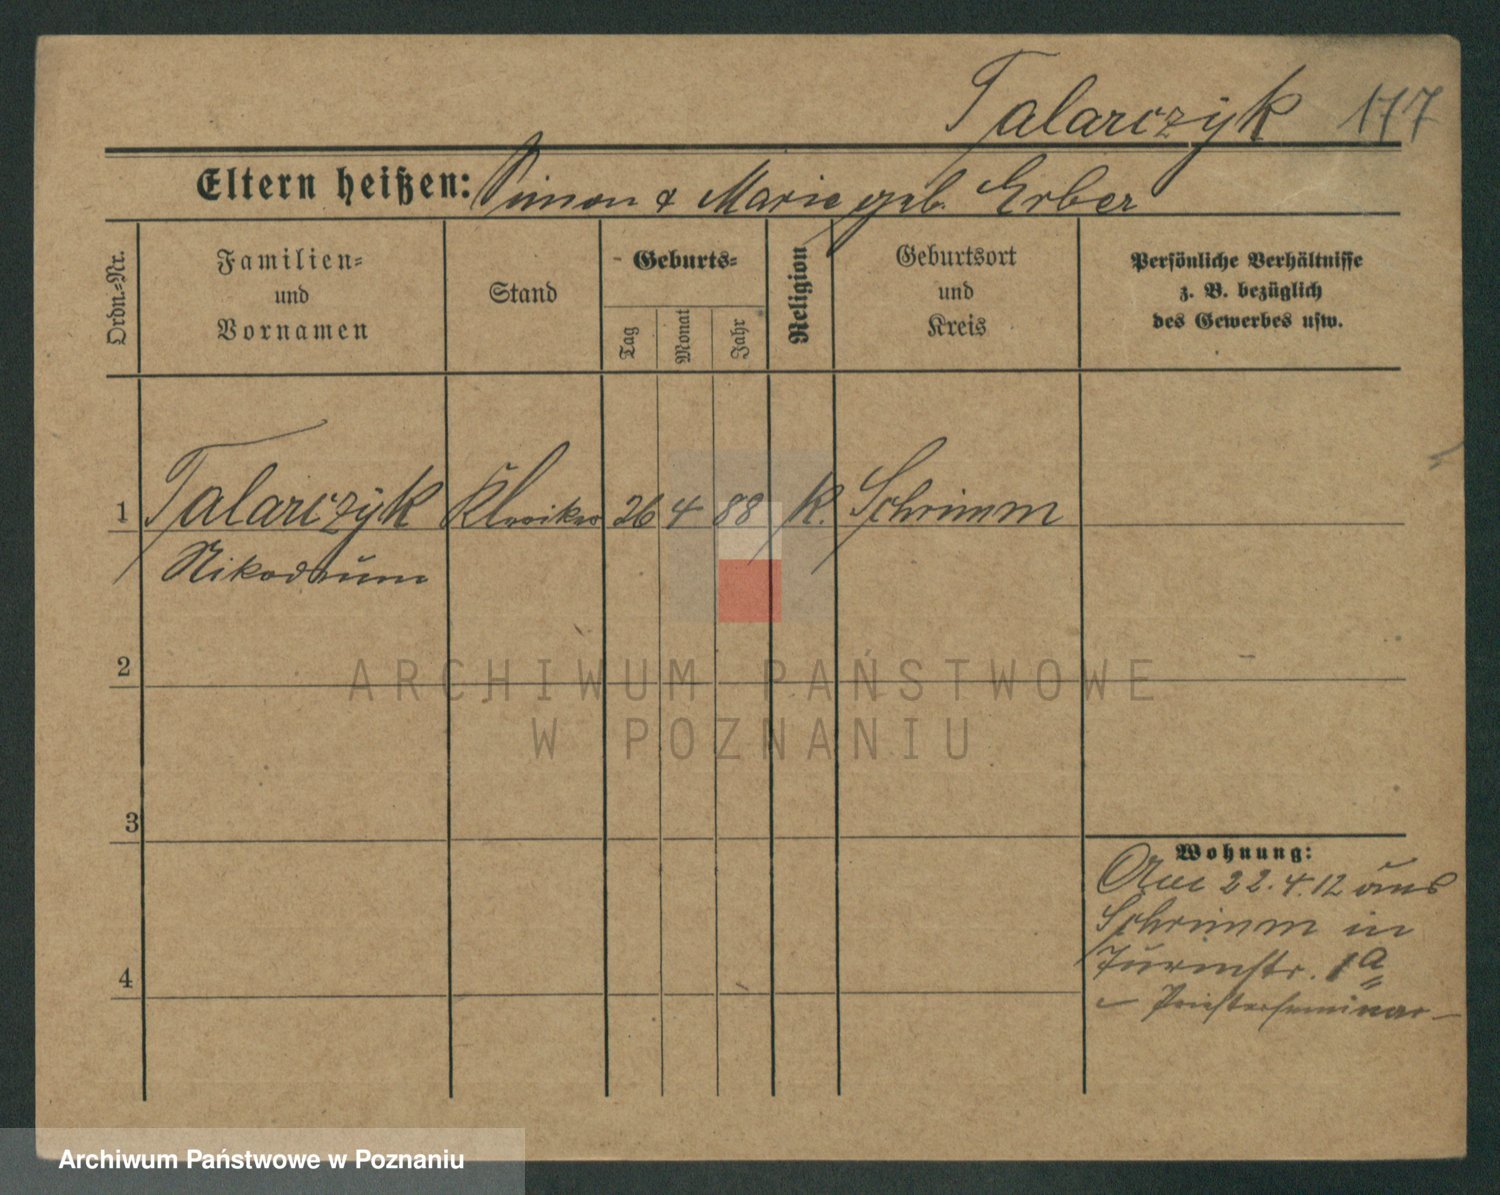 Talarczyk 177
Eltern heißen: Simon & Marie geb. Erber
Ordn.-Nr.
Familien-
und
Vornamen
Stand
Geburts-
Tag
Monat
Jahr
Religion
Geburtsort
und
Kreis
Persönliche Verhältnisse
z. B. bezüglich
des Gewerbes usw.
1 Talarczyk Kleriker 26 4 88 K. Schrimm
Nikodem
2
ARCHIWUM PAŃSTWOWE
W POZNANIU
3
Wohnung:
22.4.12 aus
Schrimm in
Turmstr. 1a
– Priesterseminar –
4
Archiwum Państwowe w Poznaniu